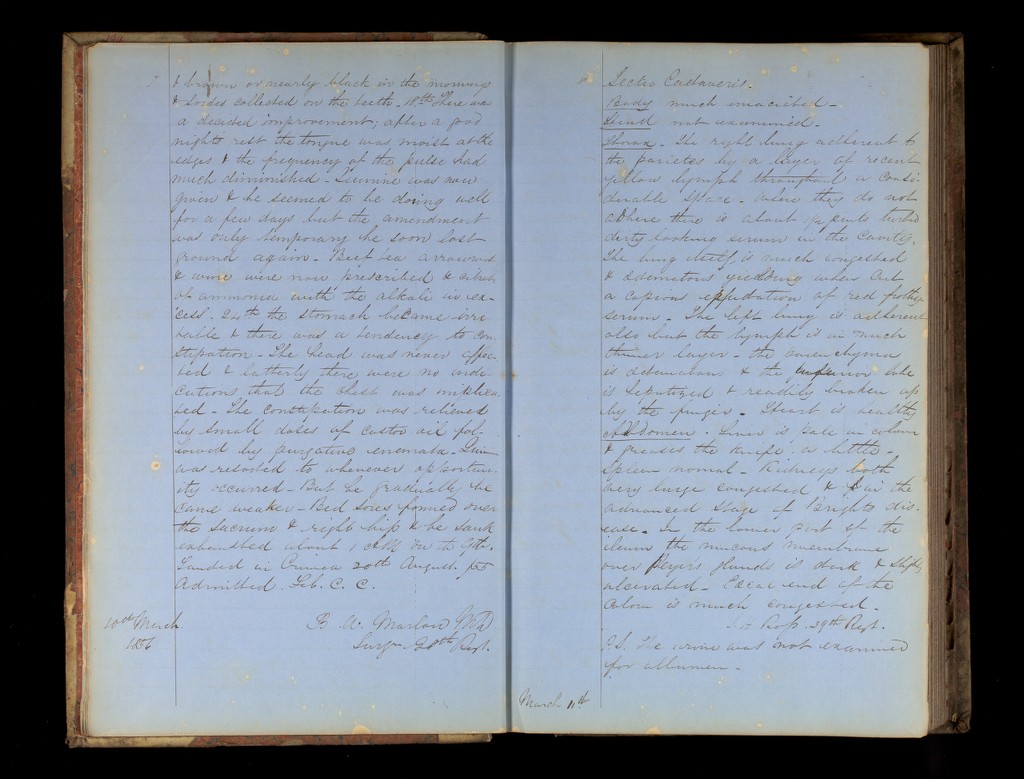 & brown or nearly black in the morning
& Sordes collected on the teeth. 18th There was
a decided improvement; after a good
nights rest the tongue was moist at the
edges & the frequency of the pulse had
much diminished - Quinine was now
given & he seemed to be doing well
for a few days but the amendment
was only temporary he soon lost
ground again - Beef tea arrowroot
& wine were now prescribed &
of ammonia with the alkali in ex-
cess. 24th the stomach became irri
table & there was a tendency to con
stipation - The head was never affec-
ted & latterly there were no indi
cations that the chest was implica
ted - The constipation was relieved
by small doses of castor oil fol-
lowed by purgative enemata - Quin
was resorted to whenever opportun-
ity occurred - But he gradually be
came weaker - Bed sores formed over
the sacrum & right hip & he sank
exhausted about 1 AM on the 9th.
Landed in Crimea 20th August /55
Admitted. Feb. C. C.
10th March
1856
B. W. Marlow MD
Surgn 28th Regt.
Sectio Cadaveris.
Body much emaciated -
Head not examined -
Thorax - The right lung adherent to
the parietes by a layer of recent
yellow lymph throughout a consi
derable space - where they do not
adhere there is about 1½ pints turbid
dirty looking serum in the cavity.
The lung itself is much congested
& oedematous yielding when cut
a copious exudation of red frothy
serum - The left lung is adherent
also but the lymph is in much
thinner layer - the parenchyma
is oedematous & the inferior lobe
is hepatized & readily broken up
by the finger - Heart is healthy
Abdomen. Liver is pale in colour
& greases the knife a little -
Spleen normal - Kidneys both
very large congested & in the
advanced stage of Brights dis-
ease - In the lower part of the
ileum the mucous membrane
over Peyers glands is dark & slightly
ulcerated - Coecal end of the
colon is much congested -
Ross. 29th Regt.
P.S. The urine was not examined
for albumen -
March 11th